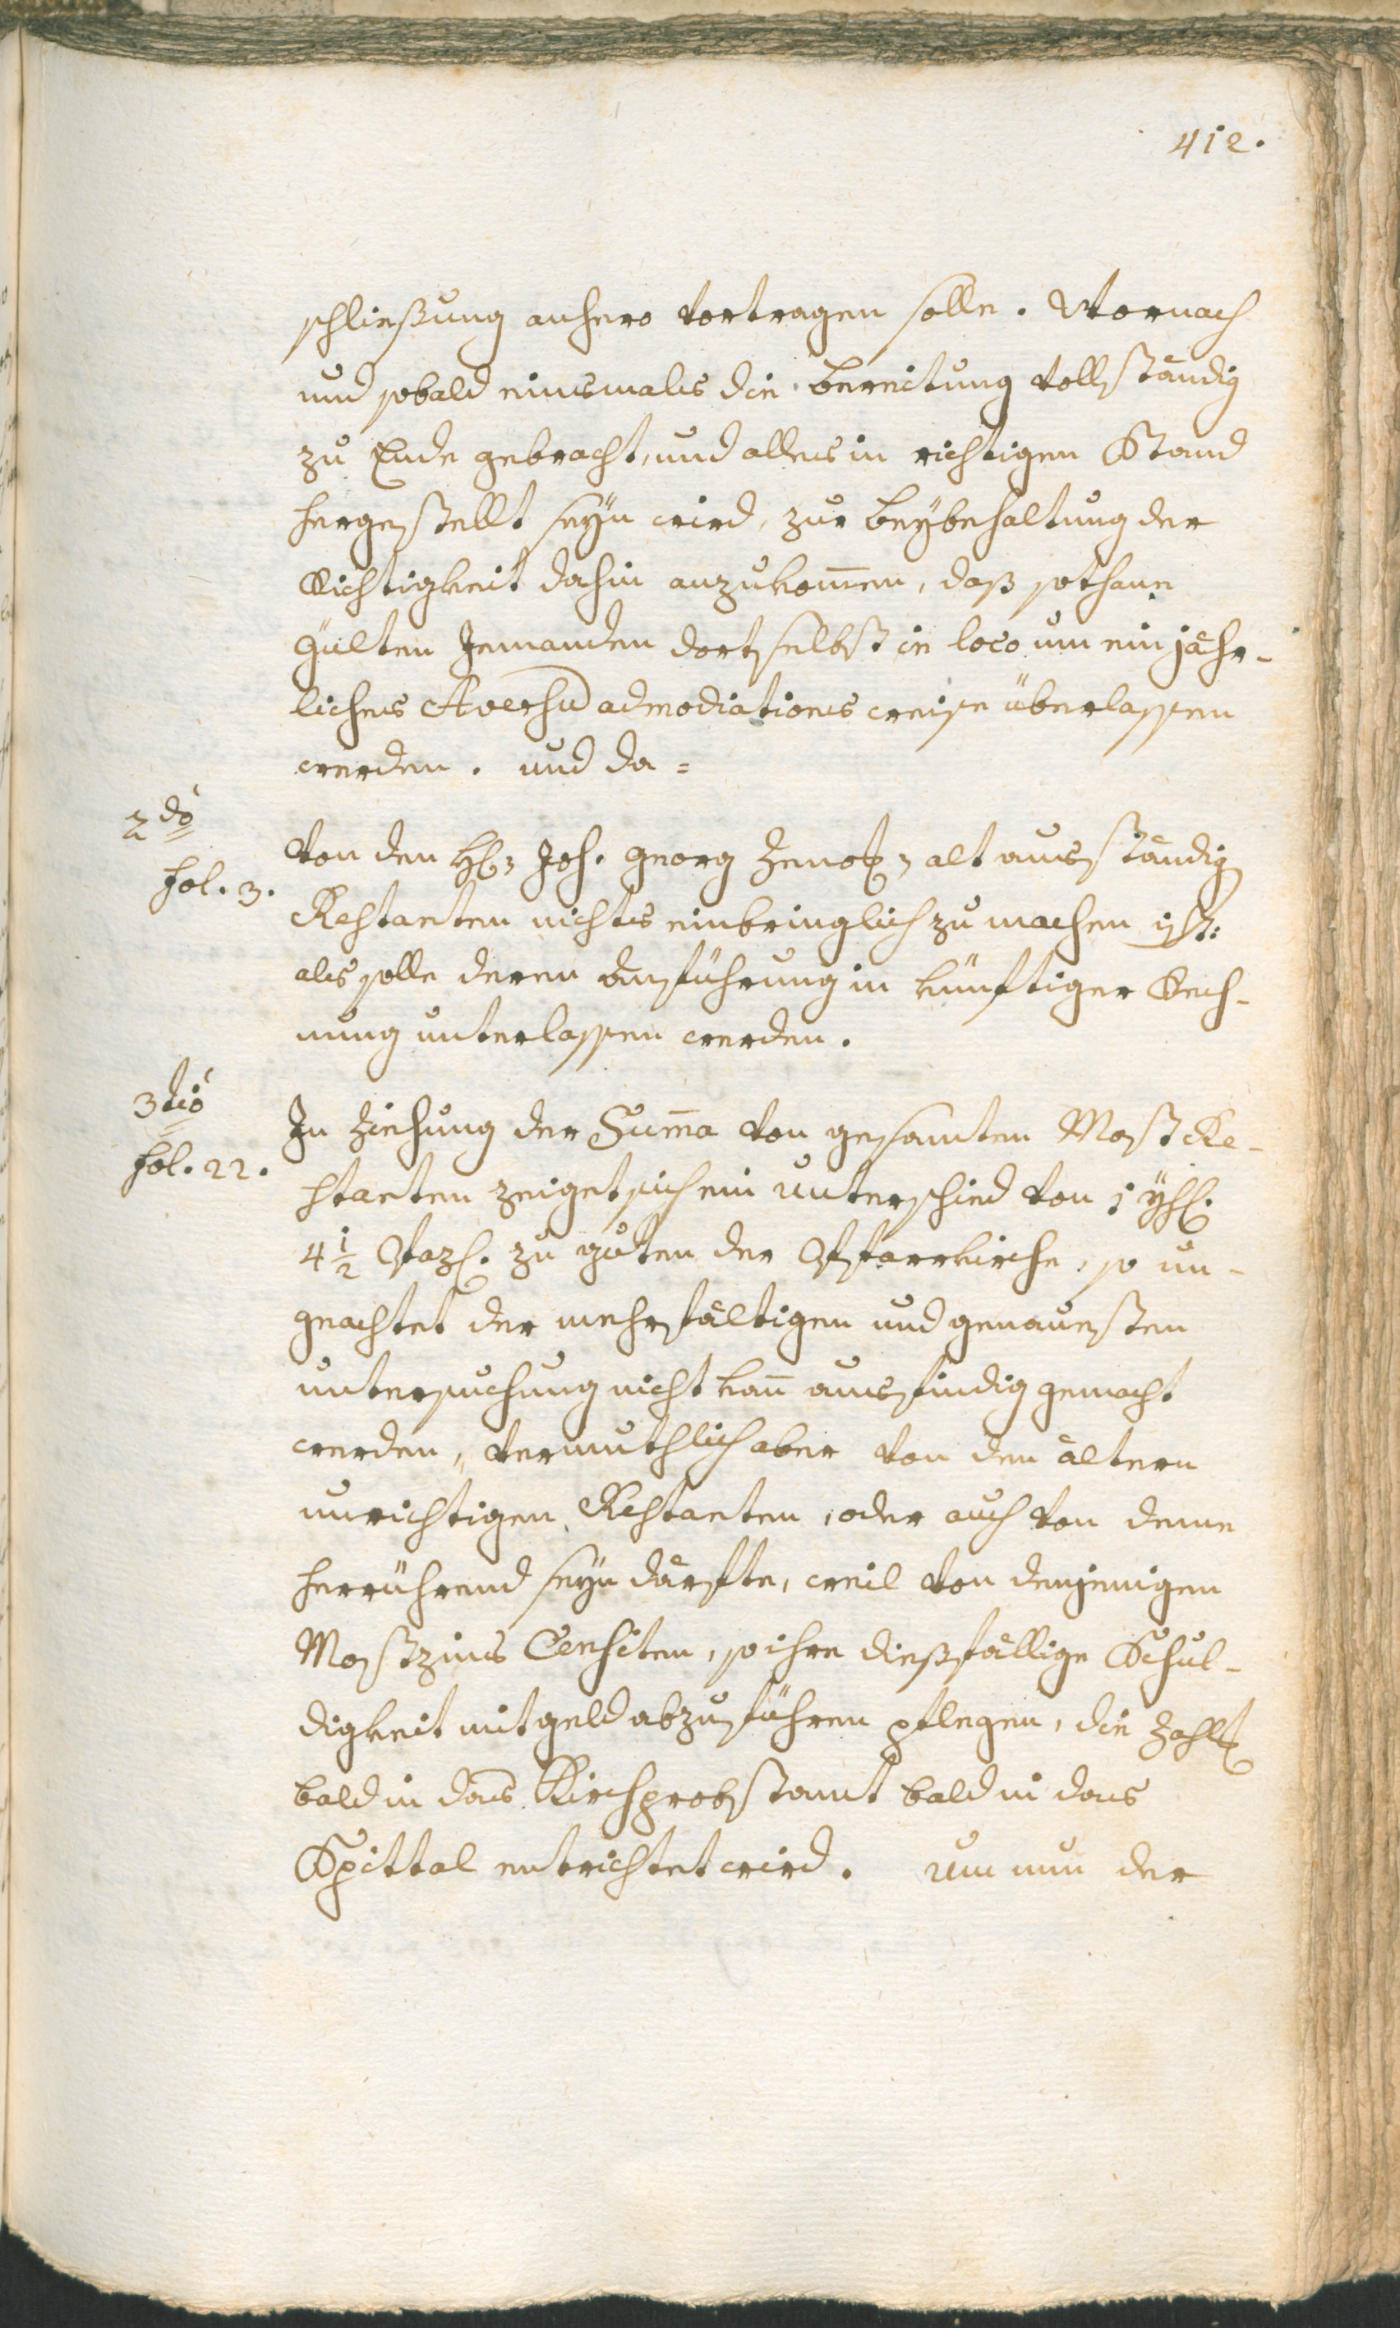 412.
schließung anhero vortragen solle. Wornach
und sobald einsmals die bereitung vollständig
zu Ende gebracht, und alles in richtigen Stand
hergestellt seÿn wird, zur beÿbehaltung der
Richtigkeit dahin anzukom̄en, daß sothane
Gülten Jemanden dortselbst in loco um ein jähr-
liches Aversu͠ admodiations weise überlassen
werden. und da =
2do
fol. 3.
von den Joh. Georg alt ausständig
Restanten nichts einbringlich zu machen ist:
als solle deren Ausführung in künftiger Rech-
nung unterlassen werden.
3tio
fol. 22.
In Ziehung der Sum̄a von gesamten Most Re-
stanten zeiget sich ein unterschied von 1 ÿh.
4 1/2 Paz. zu guten der Pfarrkirche, so un-
geachtet der mehrfältigen und genauesten
untersuchung nicht kan̄ ausfindig gemacht
werden, vermuthlich aber von den ältern
unrichtigen Restanten, oder auch von deme
herrührend seÿn därfte, weil von denjenigen
Mostzins Censiten, so ihre dießfällige Schul-
digkeit mit geld abzuführen pflegen, die
bald in das Kirchprobstamt bald in das
Spittal entrichtet wird. Um nun der